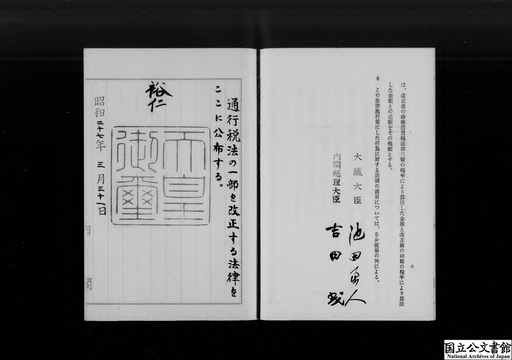 は、改正後の砂糖消費税法第三條の税率により算出した金額と改正前の同條の税率により算出
した金額との差額をその税額とする。
6 この法律施行前にした行為に対する罰則の適用については、なお従前の例による。
大藏大臣 池田勇人
内閣総理大臣 吉田茂
通行税法の一部を改正する法律を
ここに公布する。
裕仁
天皇御璽
昭和二十七年三月三十一日
国立公文書館
National Archives of Japan